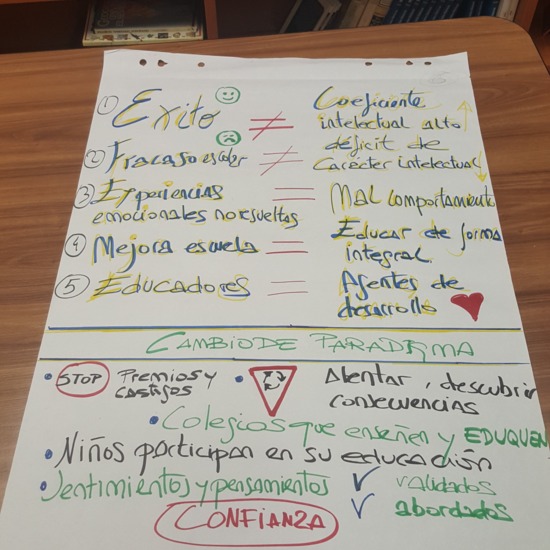 ① Exito ≠ Coeficiente
intelectual alto
② Fracaso escolar ≠ déficit de
Carácter intelectual
③ Experiencias = MAL comportamiento
emocionales no resueltas
④ Mejora escuela = Educar de forma
integral
⑤ Educadores = Agentes de
desarrollo
CAMBIO DE PARADIGMA
• STOP Premios y
castigos
• Alentar, descubrir
consecuencias
• Colegios que enseñen y EDUQUEN
• Niños participan en su educación
• Sentimientos y pensamientos ✓ validados
✓ abordados
CONFIANZA